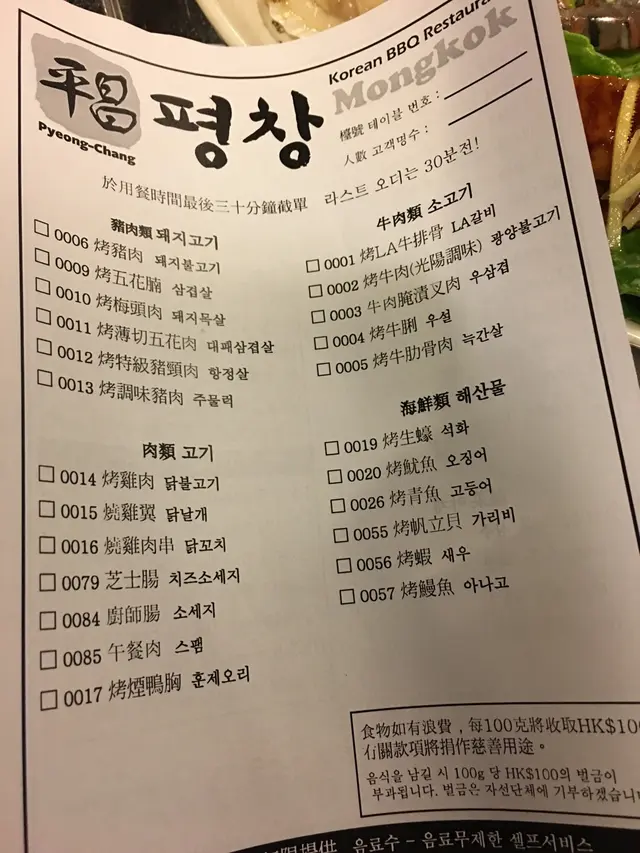 平昌
Pyeong-Chang
평창
Korean BBQ Restaura
Mongkok
檯號 테이블 번호 :
人數 고객명수 :
於用餐時間最後三十分鐘截單 라스트 오디는 30분전!
豬肉類 돼지고기
0006 烤豬肉 돼지불고기
0009 烤五花腩 삼겹살
0010 烤梅頭肉 돼지목살
0011 烤薄切五花肉 대패삼겹살
0012 烤特級豬頸肉 항정살
0013 烤調味豬肉 주물럭
肉類 고기
0014 烤雞肉 닭불고기
0015 燒雞翼 닭날개
0016 燒雞肉串 닭꼬치
0079 芝士腸 치즈소세지
0084 廚師腸 소세지
0085 午餐肉 스팸
0017 烤煙鴨胸 훈제오리
牛肉類 소고기
0001 烤LA牛排骨 LA갈비
0002 烤牛肉(光陽調味) 광양불고기
0003 牛肉腌漬叉肉 우삼겹
0004 烤牛脷 우설
0005 烤牛肋骨肉 늑간살
海鮮類 해산물
0019 烤生蠔 석화
0020 烤魷魚 오징어
0026 烤青魚 고등어
0055 烤帆立貝 가리비
0056 烤蝦 새우
0057 烤鰻魚 아나고
食物如有浪費，每100克將收取HK$10
有關款項將捐作慈善用途。
음식을 남길 시 100g 당 HK$100의 벌금이
부과됩니다. 벌금은 자선단체에 기부하겠습니
限提供 음료수 - 음료무제한 셀프서비스